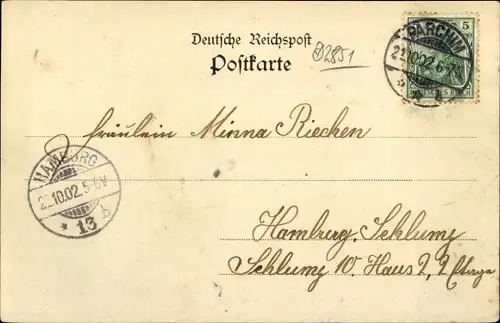 Deutsche Reichspost
D2851
Postkarte
5
PARCHIM
21.10.02.6-7N
Fräulein Minna Riechen
HAMBURG
22.10.02.5-6V
* 13 b
Hamburg. Schlump
Schlump 10. Haus 2, 2 Etage